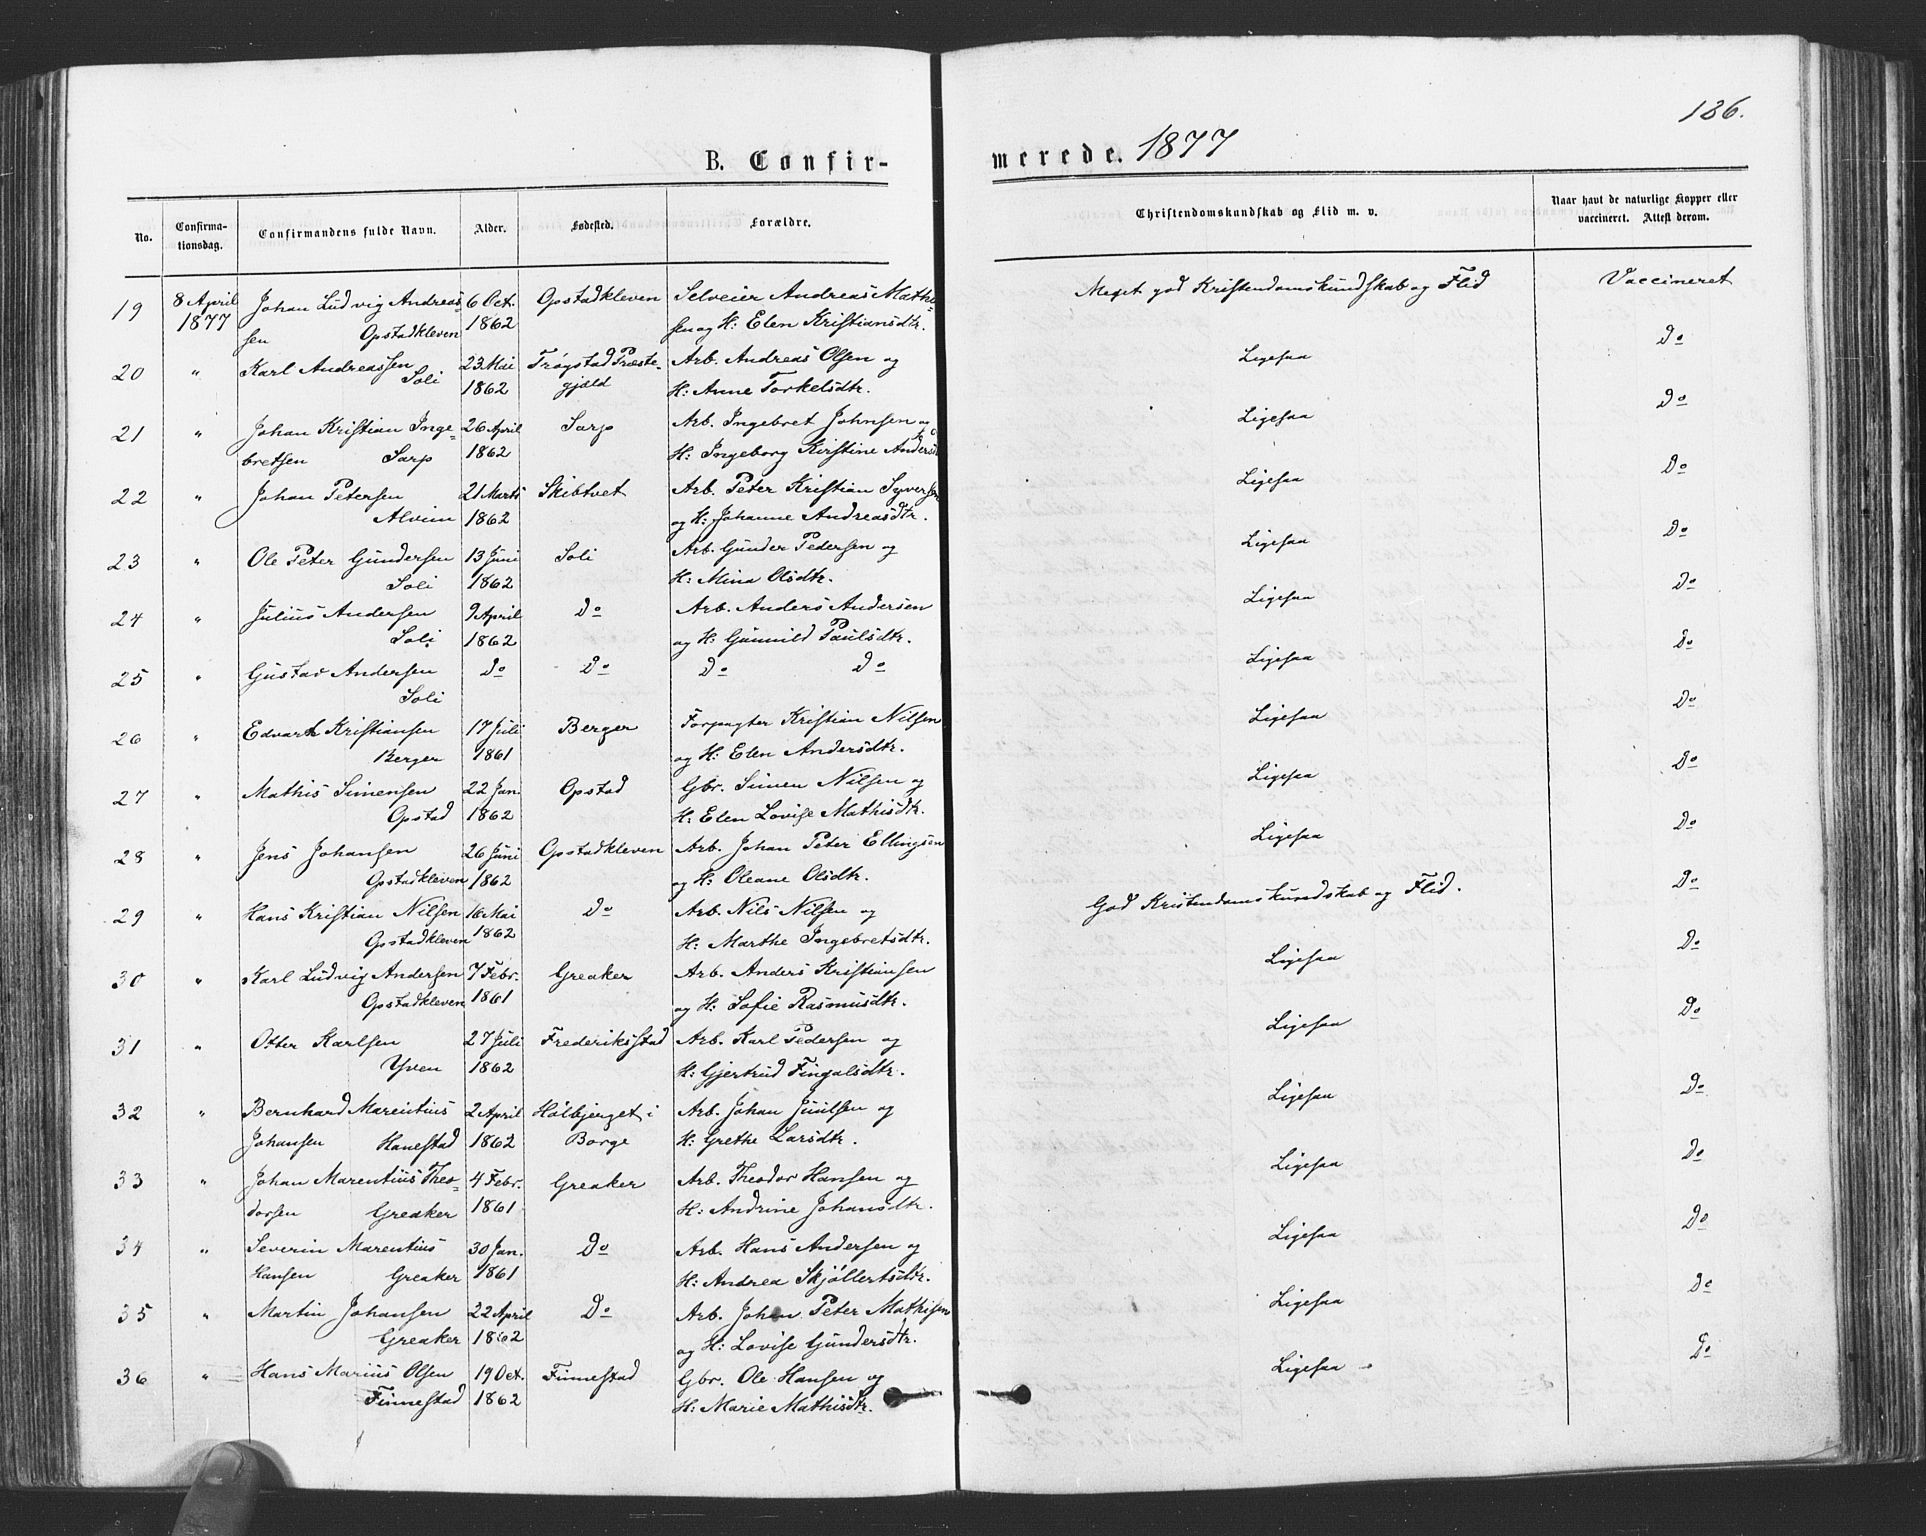 186.
B. Confir-
merede. 1877
No.
Confirma-
tionsdag.
Confirmandens fulde Navn.
Alder.
Fødested.
Forældre.
Christendomskundskab og Flid m. v.
Naar havt de naturlige Kopper eller
vaccineret. Attest derom.
19 8 April Johan Ludvig Andreas- 6 Oct. Opstadkleven Selveier Andreas Mathi- Meget god Kristendomskundskab og Flid Vaccineret
1877 sen Opstadkleven 1862 sen og H: Elen Kristiansdtr.
20 " Karl Andreassen 23 Mai Trøgstad Præste- Arb. Andreas Olsen og Ligesaa Do
Soli 1862 gjæld H: Anne Torkelsdtr.
21 " Johan Kristian Inge- 26 April Sarp Arb. Ingebret Johnsen og Ligesaa Do
bretsen Sarp 1862 H: Ingeborg Kirstine Andersd
22 " Johan Petersen 21 Marts Skibtvet Arb. Peter Kristian Syversen Ligesaa Do
Alvim 1862 og H: Johanne Andreasdtr.
23 " Ole Peter Gundersen 13 Juni Soli Arb. Gunder Pedersen og Ligesaa Do
Soli 1862 H: Mina Olsdtr.
24 " Julius Andersen 9 April Do Arb. Anders Andersen Ligesaa Do
Soli 1862 og H: Gunnild Paulsdtr.
25 " Gustav Andersen Do Do Do Do Ligesaa Do
Soli
26 " Edvart Kristiansen 17 Juli Berger Forpagter Kristian Nilsen Ligesaa Do
Berger 1861 og H: Elen Andersdtr.
27 " Mathis Simensen 22 Jan. Opstad Gbr. Simen Nilsen og Ligesaa Do
Opstad 1862 H: Elen Lovise Mathisdtr.
28 " Jens Johansen 26 Juni Opstadkleven Arb. Johan Peter Ellingsen Ligesaa Do
Opstadkleven 1862 og H: Oleane Olsdtr.
29 " Hans Kristian Nilsen 16 Mai Do Arb. Nils Nilsen og God Kristendomskundskab og Flid. Do
Opstadkleven 1862 H: Marthe Ingebretsdtr.
30 " Karl Ludvig Andersen 7 Febr. Greaker Arb. Anders Kristiansen Ligesaa Do
Opstadkleven 1861 og H: Sofie Rasmusdtr.
31 " Otter Karlsen 27 Juli Frederiksstad Arb. Karl Pedersen og Ligesaa Do
Yven 1862 H: Gjertrud Fingalsdtr.
32 " Bernhard Marentius 2 April Hølbjerget i Arb. Johan Juulsen og Ligesaa Do
Johansen Hanestad 1862 Borge H: Grethe Larsdtr.
33 " Johan Marentius Theo- 4 Febr. Greaker Arb. Theodor Hansen og Ligesaa Do
dorsen Greaker 1861 H: Andrine Johansdtr.
34 " Severin Marentius 30 Jan. Do Arb. Hans Andersen og Ligesaa Do
Hansen Greaker 1861 H: Andrea Skjøllertsdtr.
35 " Martin Johansen 22 April Do Arb. Johan Peter Mathisen Ligesaa Do
Greaker 1862 og H: Lovise Gundersdtr.
36 " Hans Marius Olsen 19 Oct. Finnestad Gbr. Ole Hansen og Ligesaa Do
Finnestad 1862 H: Marie Mathisdtr.